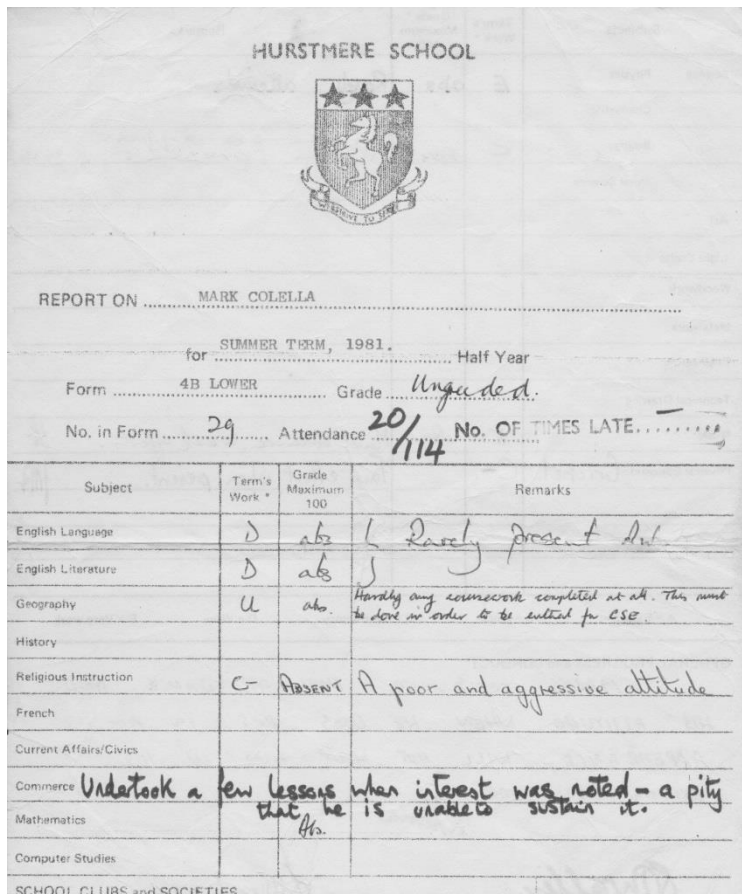 HURSTMERE SCHOOL
REPORT ON ........ MARK COLELLA
for SUMMER TERM, 1981. Half Year
Form 4B LOWER Grade Ungraded.
No. in Form 29 Attendance 20/114 No. OF TIMES LATE –
Subject Term's Work * Grade Maximum 100 Remarks
English Language D abs Rarely present
English Literature D abs
Geography U abs. Hardly any coursework completed at all. This must
be done in order to be entered for CSE.
History
Religious Instruction C- ABSENT A poor and aggressive attitude
French
Current Affairs/Civics
Commerce Undertook a few lessons when interest was noted – a pity
that he is unable to sustain it.
Mathematics Abs.
Computer Studies
SCHOOL CLUBS and SOCIETIES